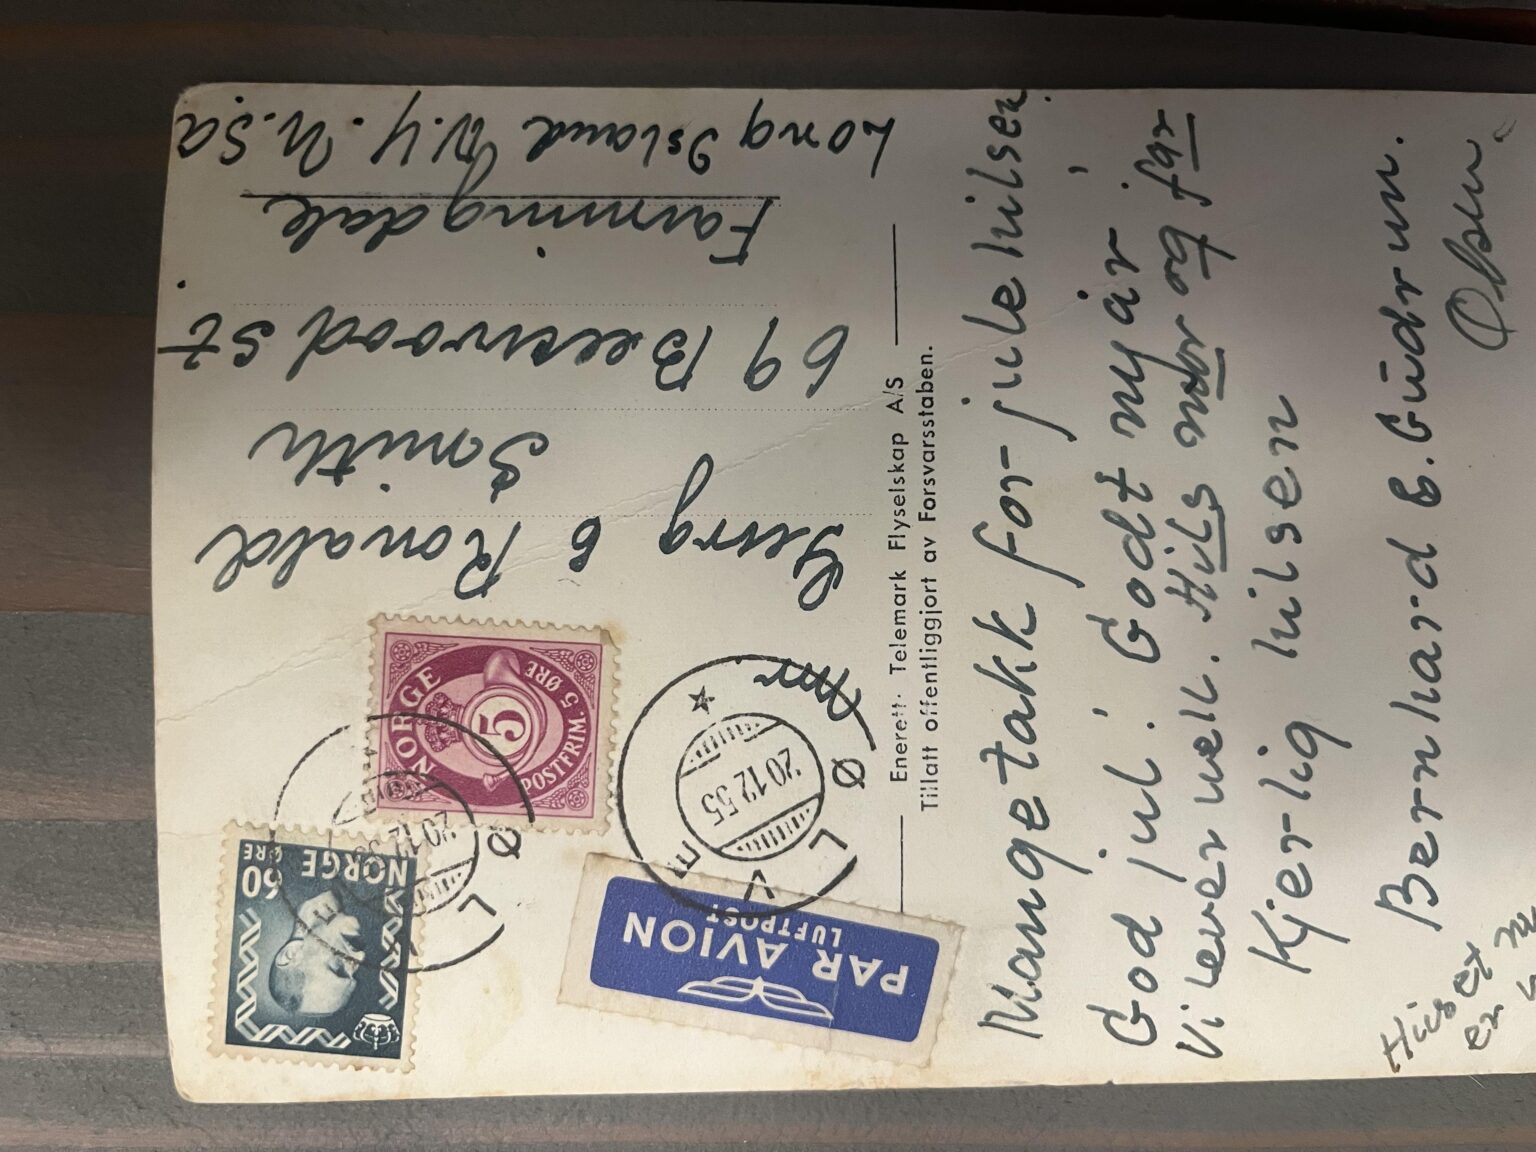 Mange takk for julehilsen.
God jul! Godt nyår!
Vi lever vell. Hils mor og far
Kjerlig hilsen
Bernhard & Gudrun.
Olsen.
Huset
er
Enerett: Telemark Flyselskap A/S
Tillatt offentliggjort av Forsvarsstaben.
PAR AVION
LUFTPOST
20.12.55
NORGE
5
POSTFRIM. 5 ØRE
20.12.55
60
ØRE
NORGE
Georg & Ronald
Smith
69 St.
Farmingdale
Long Island N.Y. U.Sa